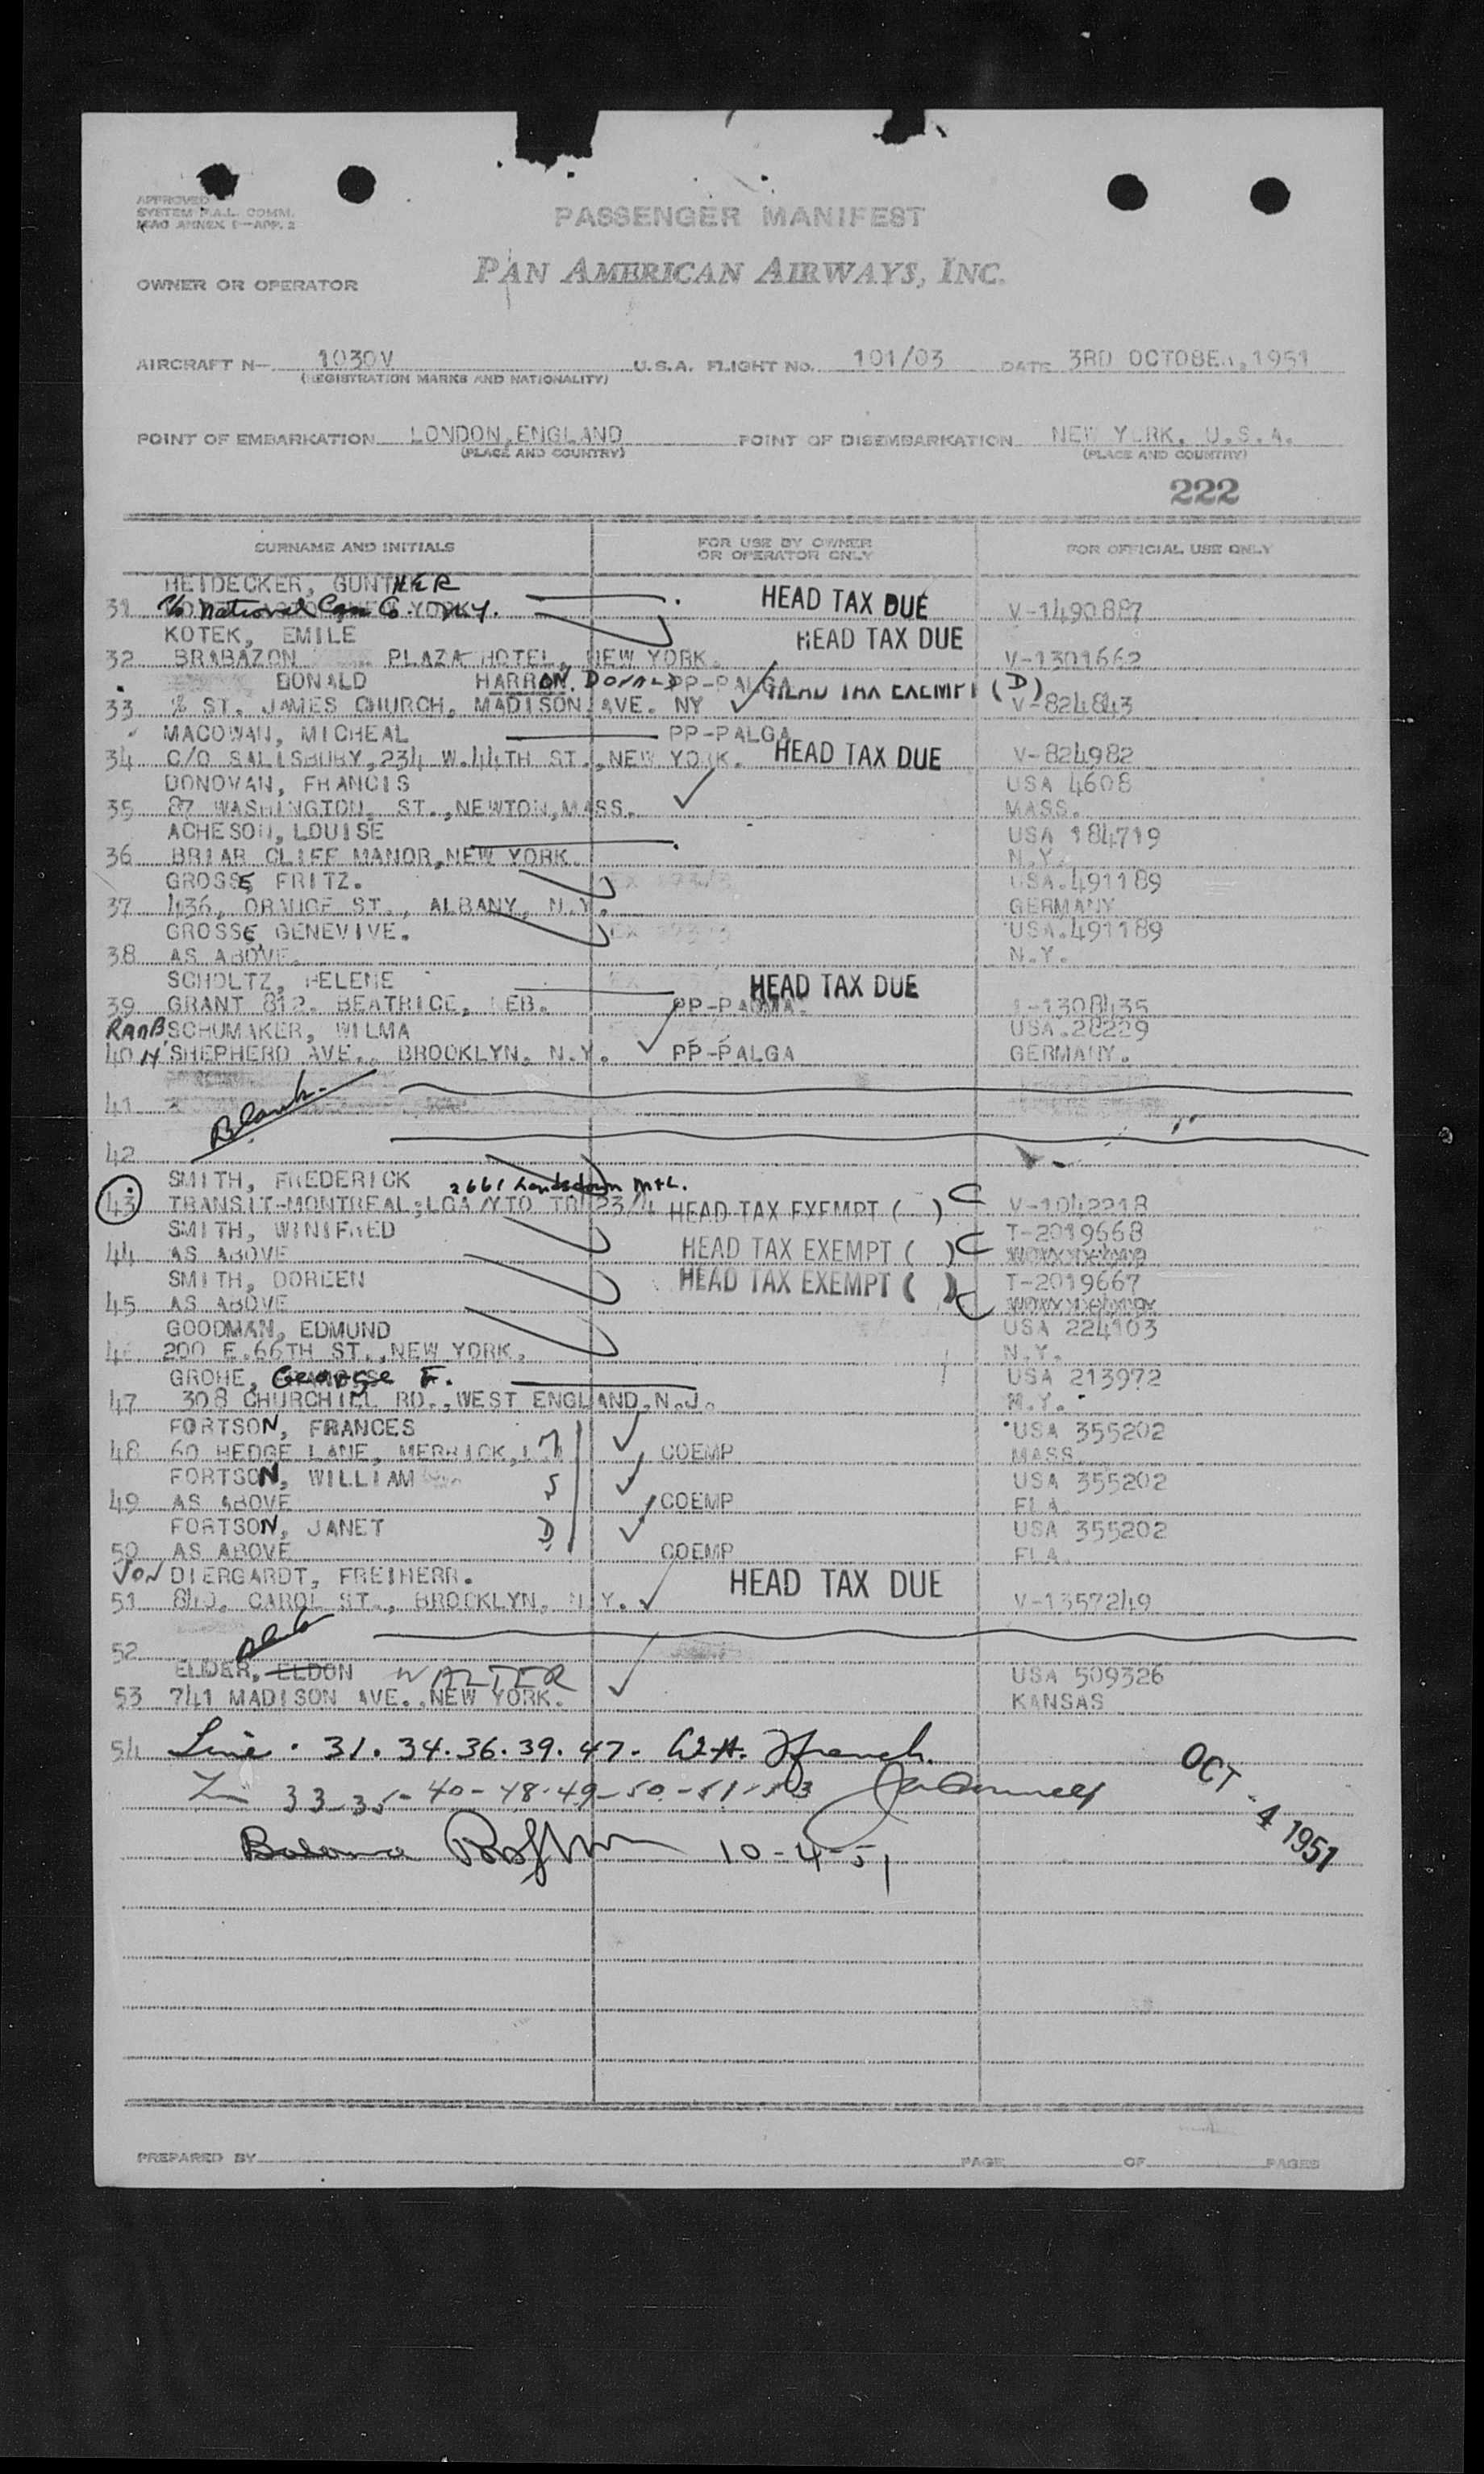 APPROVED
SYSTEM F.A.L. COMM.
ICAO ANNEX 9—APP. 2
PASSENGER MANIFEST
OWNER OR OPERATOR PAN AMERICAN AIRWAYS, INC.
AIRCRAFT N— 1030V U.S.A. FLIGHT NO. 101/03 DATE 3RD OCTOBER, 1951
(REGISTRATION MARKS AND NATIONALITY)
POINT OF EMBARKATION LONDON, ENGLAND POINT OF DISEMBARKATION NEW YORK, U.S.A.
(PLACE AND COUNTRY) (PLACE AND COUNTRY)
222
SURNAME AND INITIALS FOR USE BY OWNER OR OPERATOR ONLY FOR OFFICIAL USE ONLY
HEIDECKER, GUNTHER
31 c/o National Can Co. NY. HEAD TAX DUE V-1490887
KOTEK, EMILE HEAD TAX DUE
32 BRABAZON PLAZA HOTEL, NEW YORK. V-1301662
DONALD HARRON, DONALD PP-PALGA HEAD TAX EXEMPT (D)
33 % ST. JAMES CHURCH, MADISON AVE. NY V-824843
MACOWAN, MICHEAL PP-PALGA
34 C/O SALISBURY, 234 W.44TH ST., NEW YORK. HEAD TAX DUE V-824982
DONOVAN, FRANCIS USA 4608
35 87 WASHINGTON, ST., NEWTON, MASS. MASS.
ACHESON, LOUISE USA 184719
36 BRIAR CLIFF MANOR, NEW YORK. N.Y.
GROSSE, FRITZ. USA.491189
37 436, ORANGE ST., ALBANY, N.Y. GERMANY
GROSSE, GENEVIVE. USA.491189
38 AS ABOVE. N.Y.
SCHOLTZ, HELENE HEAD TAX DUE
39 GRANT 812. BEATRICE, NEB. PP-PAOMA. -1308435
RAAB SCHUMAKER, WILMA USA.28229
40 SHEPHERD AVE., BROOKLYN, N.Y. PP-PALGA GERMANY.
41 Blank
42
SMITH, FREDERICK 2661 Landsdown Mtl.
43 TRANSIT-MONTREAL; LGA/YTO TR 23/4 HEAD TAX EXEMPT ( ) C V-1042218
SMITH, WINIFRED T-2019668
44 AS ABOVE HEAD TAX EXEMPT ( ) C
SMITH, DOREEN HEAD TAX EXEMPT ( ) C T-2019667
45 AS ABOVE
GOODMAN, EDMUND USA 224103
46 200 E.66TH ST., NEW YORK. N.Y.
GROHE, George F. USA 213972
47 308 CHURCHILL RD., WEST ENGLAND, N.J. N.Y.
FORTSON, FRANCES USA 355202
48 60 HEDGE LANE, MERRICK, COEMP MASS.
FORTSON, WILLIAM S USA 355202
49 AS ABOVE COEMP FLA.
FORTSON, JANET D USA 355202
50 AS ABOVE COEMP FLA.
VON DIERGARDT, FREIHERR. HEAD TAX DUE
51 840, CAROL ST., BROOKLYN, N.Y. V-1357249
52
ELDER, ELDON WALTER USA 509326
53 741 MADISON AVE., NEW YORK. KANSAS
54 Line. 31. 34. 36. 39. 47.
33-35-40-48-49-50-51-53
10-4-51
OCT - 4 1951
PREPARED BY PAGE OF PAGES